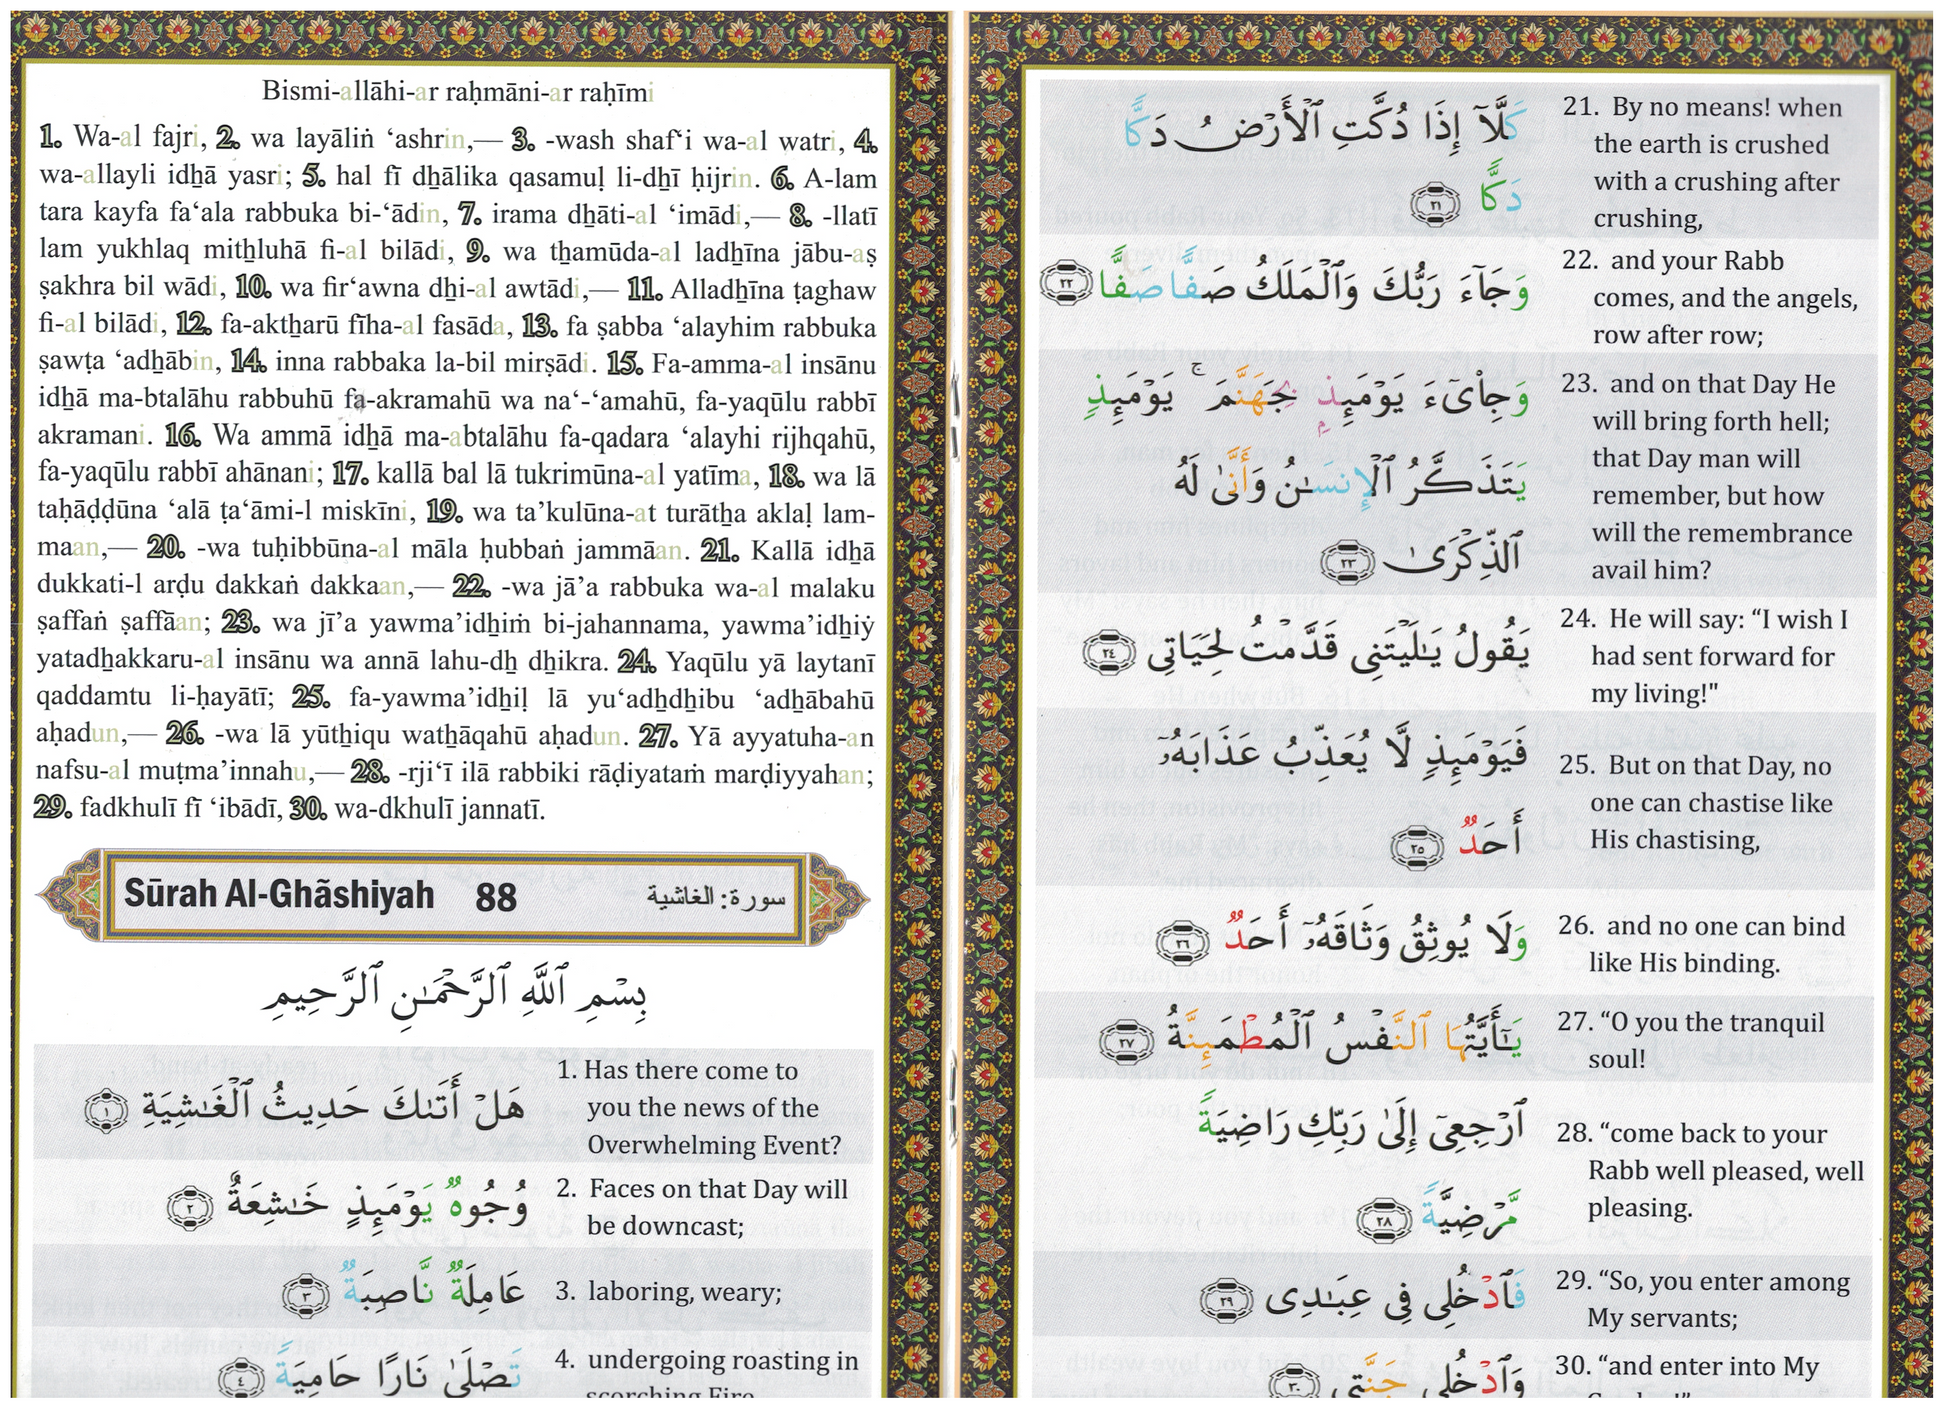 Bismi-allāhi-ar raḥmāni-ar raḥīmi
1. Wa-al fajri, 2. wa layāliṅ ‘ashrin,— 3. -wash shaf‘i wa-al watri, 4.
wa-allayli idẖā yasri; 5. hal fī dẖālika qasamuḷ li-dẖī ḥijrin. 6. A-lam
tara kayfa fa‘ala rabbuka bi-‘ādin, 7. irama dẖāti-al ‘imādi,— 8. -llatī
lam yukhlaq mitẖluhā fi-al bilādi, 9. wa tẖamūda-al ladẖīna jābu-aṣ
ṣakhra bil wādi, 10. wa fir‘awna dhi-al awtādi,— 11. Alladẖīna ṭaghaw
fi-al bilādi, 12. fa-aktẖarū fīha-al fasāda, 13. fa ṣabba ‘alayhim rabbuka
ṣawṭa ‘adẖābin, 14. inna rabbaka la-bil mirṣādi. 15. Fa-amma-al insānu
idẖā ma-btalāhu rabbuhū fa-akramahū wa na‘-‘amahū, fa-yaqūlu rabbī
akramani. 16. Wa ammā idẖā ma-abtalāhu fa-qadara ‘alayhi rijhqahū,
fa-yaqūlu rabbī ahānani; 17. kallā bal lā tukrimūna-al yatīma, 18. wa lā
taḥāḍḍūna ‘alā ṭa‘āmi-l miskīni, 19. wa ta’kulūna-at turātẖa aklaḷ lam-
maan,— 20. -wa tuḥibbūna-al māla ḥubbaṅ jammāan. 21. Kallā idẖā
dukkati-l arḍu dakkaṅ dakkaan,— 22. -wa jā’a rabbuka wa-al malaku
ṣaffaṅ ṣaffāan; 23. wa jī’a yawma’idẖiṁ bi-jahannama, yawma’idẖiẏ
yatadẖakkaru-al insānu wa annā lahu-dẖ dẖikra. 24. Yaqūlu yā laytanī
qaddamtu li-ḥayātī; 25. fa-yawma’idẖiḷ lā yu‘adẖdẖibu ‘adẖābahū
aḥadun,— 26. -wa lā yūtẖiqu watẖāqahū aḥadun. 27. Yā ayyatuha-an
nafsu-al muṭma’innahu,— 28. -rji‘ī ilā rabbiki rāḍiyataṁ marḍiyyahan;
29. fadkhulī fī ‘ibādī, 30. wa-dkhulī jannatī.
Sūrah Al-Ghãshiyah 88 سورة: الغاشية
بِسْمِ ٱللَّهِ ٱلرَّحْمَـٰنِ ٱلرَّحِيمِ
هَلْ أَتَىٰكَ حَدِيثُ ٱلْغَـٰشِيَةِ ١
1. Has there come to
you the news of the
Overwhelming Event?
وُجُوهٌ يَوْمَئِذٍ خَـٰشِعَةٌ ٢
2. Faces on that Day will
be downcast;
عَامِلَةٌ نَّاصِبَةٌ ٣
3. laboring, weary;
تَصْلَىٰ نَارًا حَامِيَةً ٤
4. undergoing roasting in
scorching Fire
كَلَّآ إِذَا دُكَّتِ ٱلْأَرْضُ دَكًّا
دَكًّا ٢١
21. By no means! when
the earth is crushed
with a crushing after
crushing,
وَجَآءَ رَبُّكَ وَٱلْمَلَكُ صَفًّا صَفًّا ٢٢
22. and your Rabb
comes, and the angels,
row after row;
وَجِا۟ىٓءَ يَوْمَئِذٍۭ بِجَهَنَّمَ ۚ يَوْمَئِذٍ
يَتَذَكَّرُ ٱلْإِنسَـٰنُ وَأَنَّىٰ لَهُ
ٱلذِّكْرَىٰ ٢٣
23. and on that Day He
will bring forth hell;
that Day man will
remember, but how
will the remembrance
avail him?
يَقُولُ يَـٰلَيْتَنِى قَدَّمْتُ لِحَيَاتِى ٢٤
24. He will say: “I wish I
had sent forward for
my living!"
فَيَوْمَئِذٍ لَّا يُعَذِّبُ عَذَابَهُۥٓ
أَحَدٌ ٢٥
25. But on that Day, no
one can chastise like
His chastising,
وَلَا يُوثِقُ وَثَاقَهُۥٓ أَحَدٌ ٢٦
26. and no one can bind
like His binding.
يَـٰٓأَيَّتُهَا ٱلنَّفْسُ ٱلْمُطْمَئِنَّةُ ٢٧
27. “O you the tranquil
soul!
ٱرْجِعِىٓ إِلَىٰ رَبِّكِ رَاضِيَةً
مَّرْضِيَّةً ٢٨
28. “come back to your
Rabb well pleased, well
pleasing.
فَٱدْخُلِى فِى عِبَـٰدِى ٢٩
29. “So, you enter among
My servants;
وَٱدْخُلِى جَنَّتِى ٣٠
30. “and enter into My